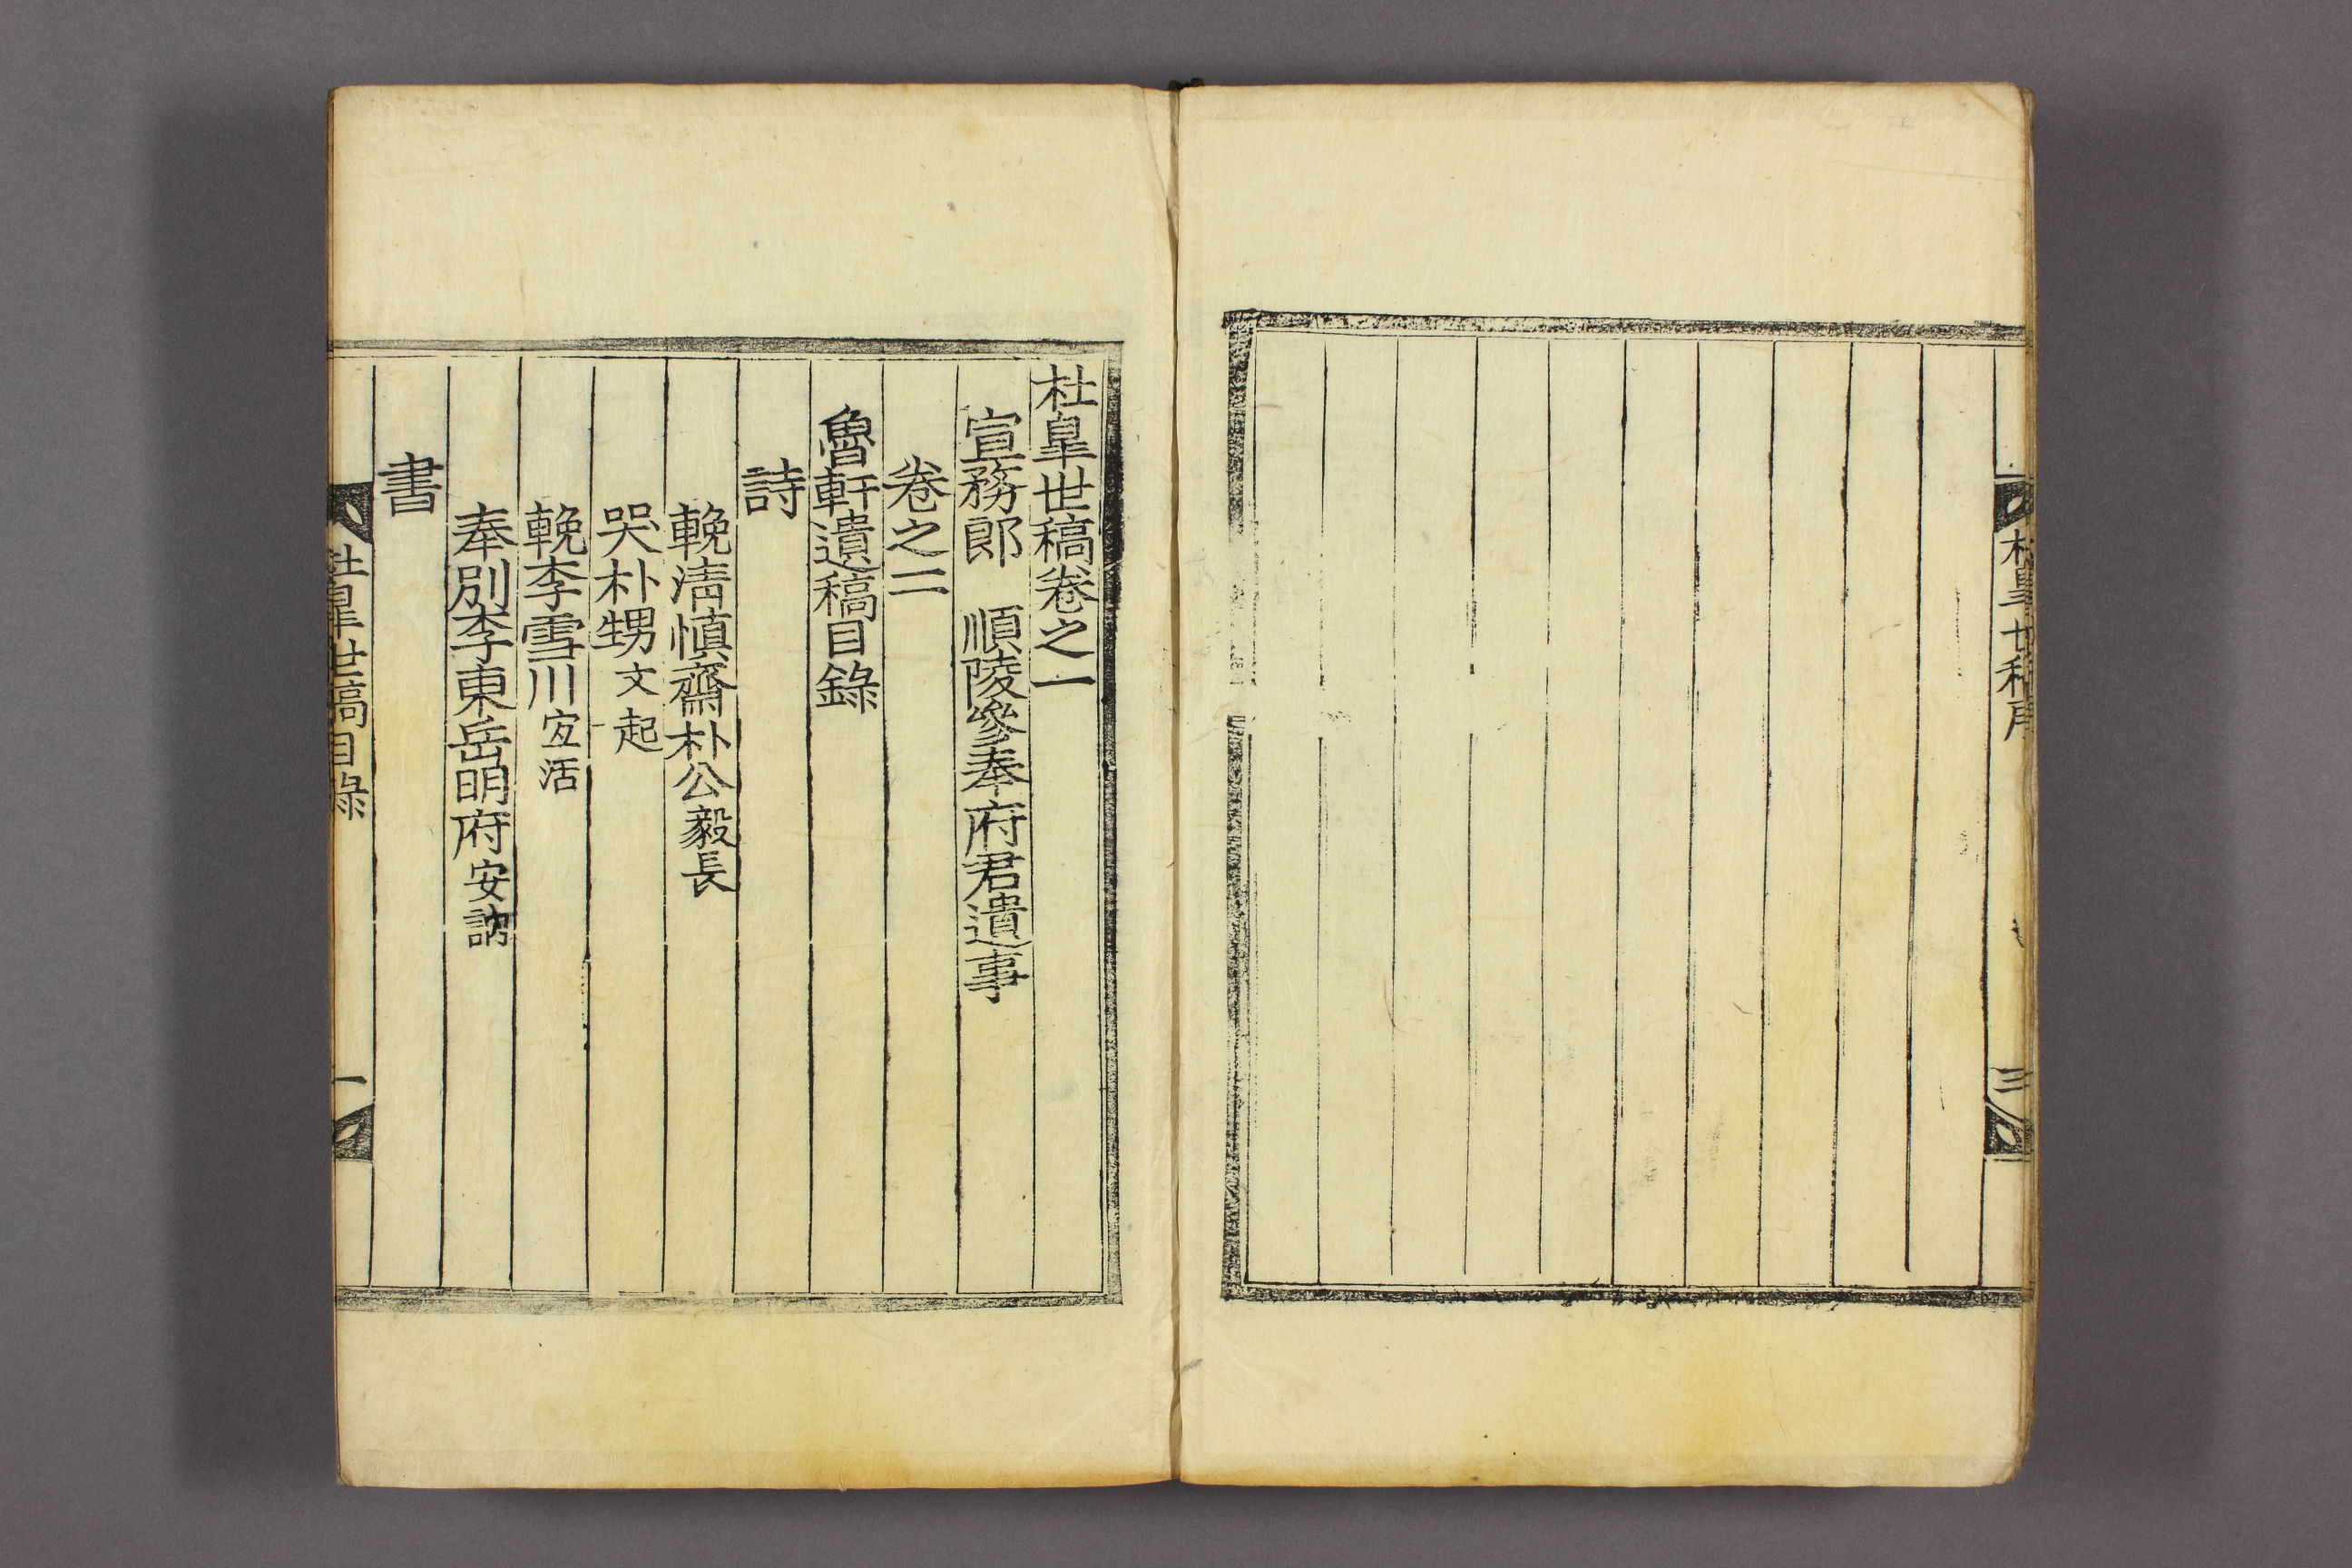 杜臯世稿序
三
杜臯世稿卷之一
宣務郎 順陵參奉府君遺事
卷之二
魯軒遺稿目錄
詩
輓淸愼齋朴公毅長
哭朴甥文起
輓李雪川宜活
奉別李東岳明府安訥
書
杜臯世稿目錄
一